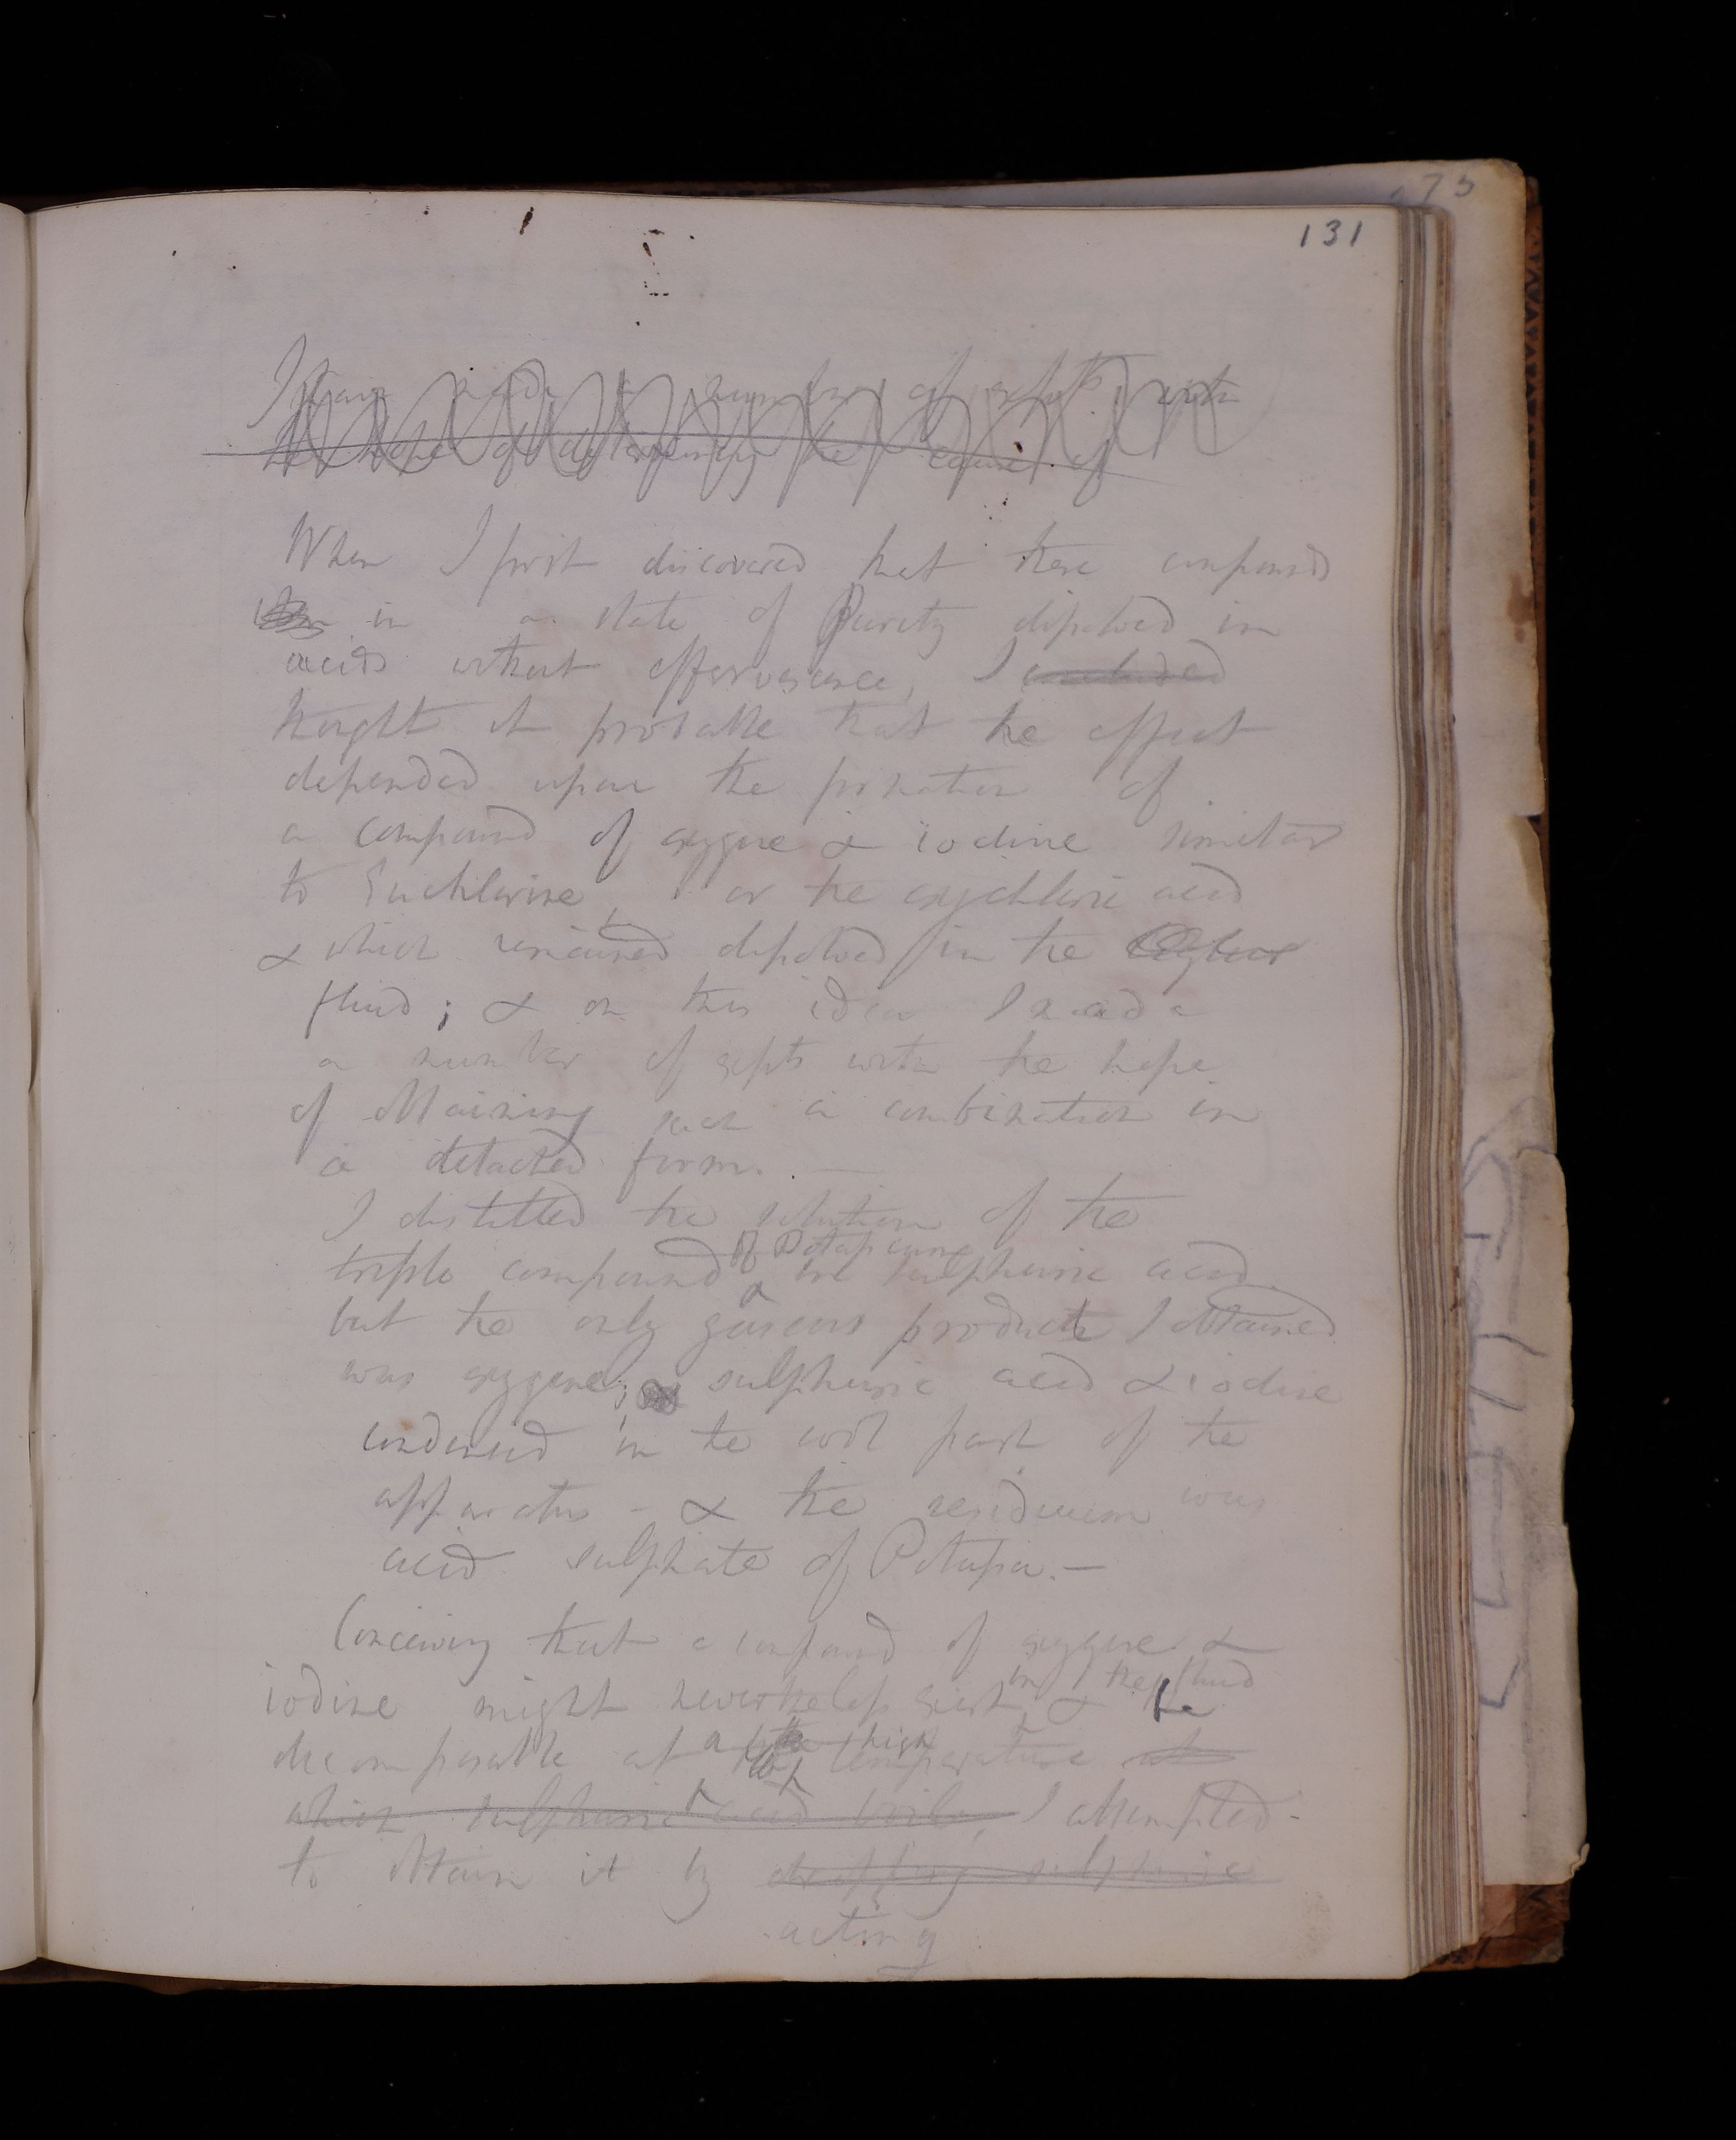 131
I have made a number of expts with
the hope of determining the cause of
When I first discovered that these compounds
in a state of Purity dissolved in
acids without effervescence, I concluded
thought it probable that the effect
depended upon the formation of
a compound of oxygene & iodine similar
to Euchlorine, or the oxychloric acid
& which remained dissolved in the
fluid; & on this idea I made
a number of expts with the hope
of obtaining such a combination in
a detached form. —
I distilled the solution of the
of Potassium
triple compound in sulphuric acid
but the only gaseous products I obtained
was oxygene; sulphuric acid & iodine
condensed in the cool part of the
apparatus - & the residuum was
acid sulphate of Potassa. —
Conceiving that a compound of oxygene &
in the fluid
iodine might nevertheless exist & be
a little high
decomposable at temperature at
which sulphuric acid boils, I attempted -
to obtain it by dropping sulphuric
acting